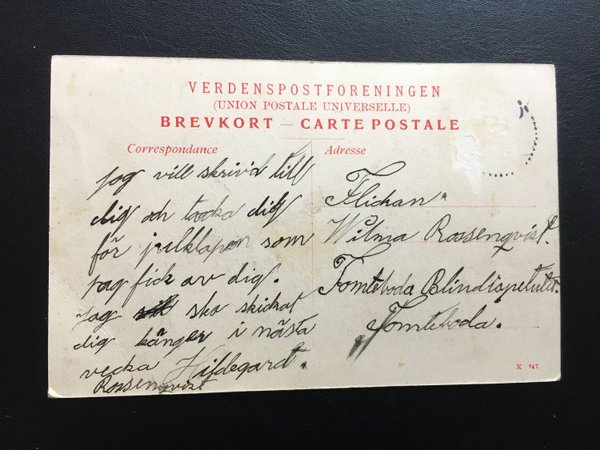 VERDENSPOSTFORENINGEN
(UNION POSTALE UNIVERSELLE)
BREVKORT — CARTE POSTALE
Correspondance
Jag vill skriva till
dig och tacka dig
för julklapen som
jag fick av dig.
Jag ska skickat
dig känger i nästa
vecka Hildegardt.
Rossenqvist
Adresse
Flickan
Wilma Rossenqvist.
Tomteboda Blindispetutet.
Tomteboda.
K 747